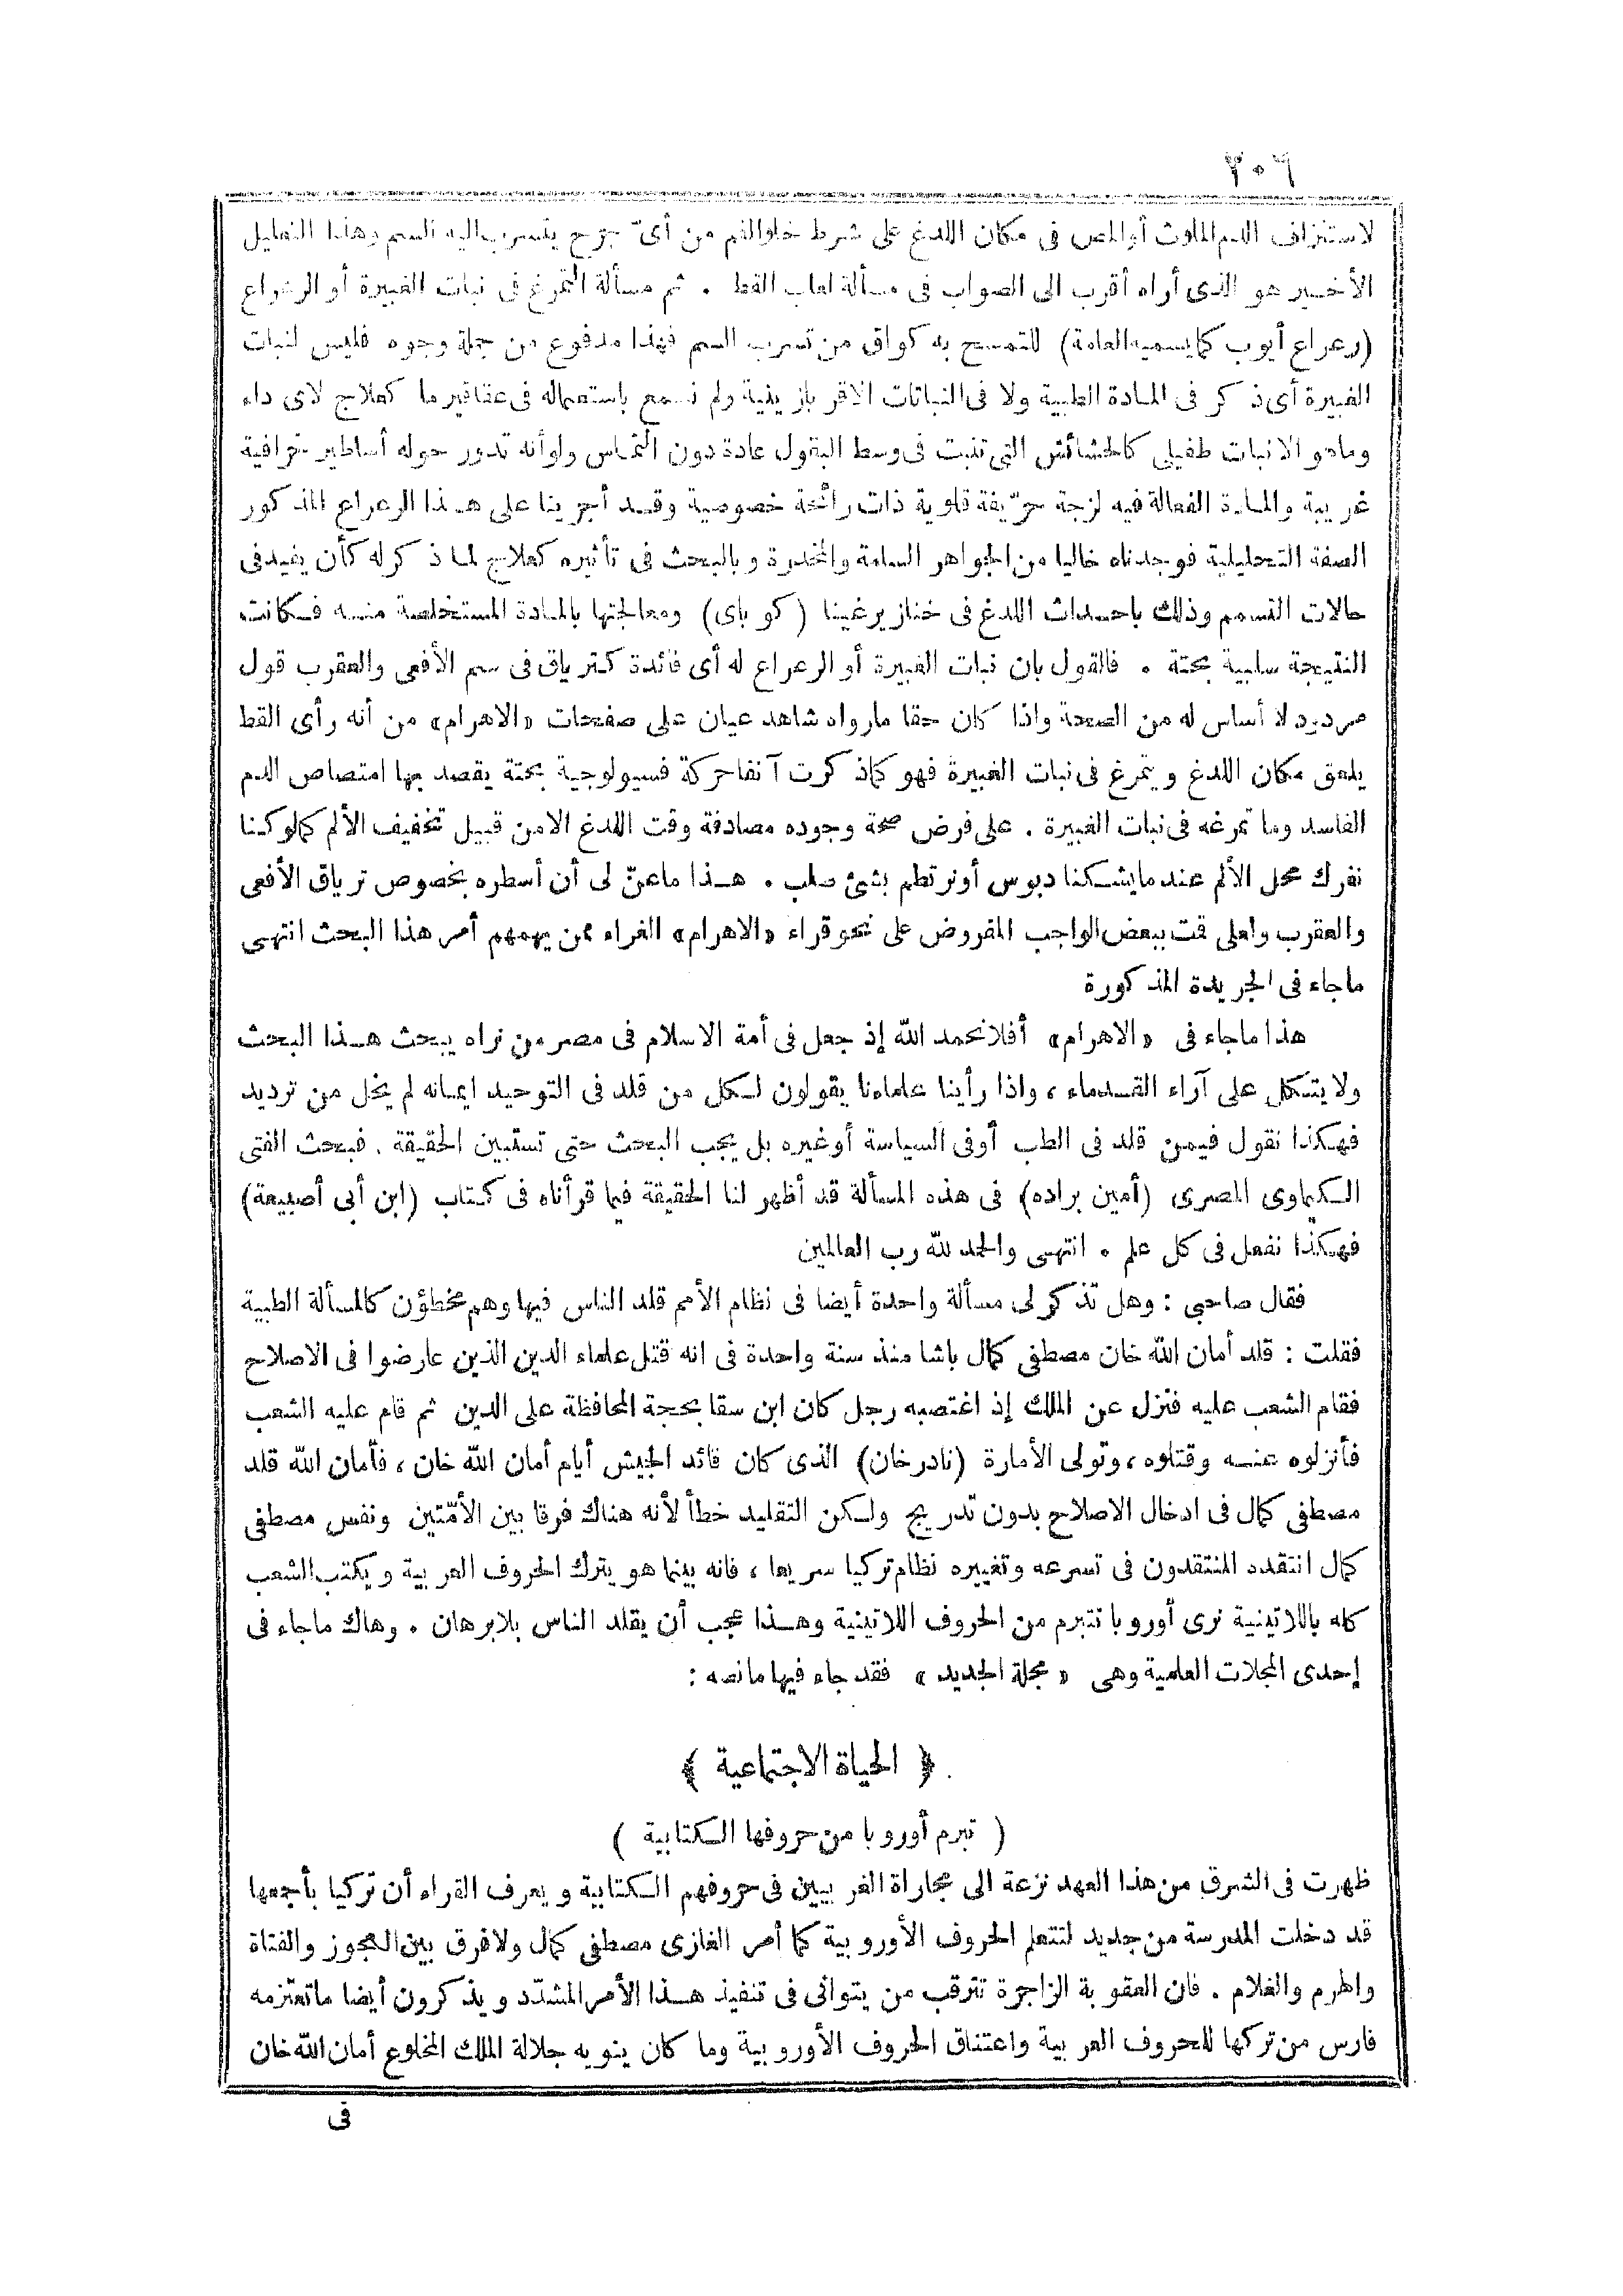 ٢٠٦
لاستنزاف الدم الملوث أو المص فى مكان اللدغ على شرط خلو الفم من أىّ جرح يتسرب اليه السم وهذا التعليل
الأخير هو الذى أراه أقرب الى الصواب فى مسألة لعاب القط . ثم مسألة التمرغ فى نبات الغبيرة أو الرعراع
(رعراع أيوب كما يسميه العامة) للتمسح به كواق من تسرب السم فهذا مدفوع من جملة وجوه فليس لنبات
الغبيرة أى ذكر فى المادة الطبية ولا فى النباتات الاقرباذينية ولم نسمع باستعماله فى عقاقير ما كعلاج لاى داء
وماهو الا نبات طفيلى كالحشائش التى تنبت فى وسط البقول عادة دون التماس ولو أنه تدور حوله أساطير خرافية
غريبة والمادة الفعالة فيه لزجة حرّيفة قلوية ذات رائحة خصوصية وقد أجرينا على هذا الرعراع المذكور
الصفة التحليلية فوجدناه خاليا من الجواهر السامة والمخدرة وبالبحث فى تأثيره كعلاج لما ذكر له كأن يفيد فى
حالات التسمم وذلك باحداث اللدغ فى خنازير غينيا (كوباى) ومعالجتها بالمادة المستخلصة منه فكانت
النتيجة سلبية بحتة . فالقول بان نبات الغبيرة أو الرعراع له أى فائدة كترياق فى سم الأفعى والعقرب قول
مردود لا أساس له من الصحة واذا كان حقا مارواه شاهد عيان على صفحات «الاهرام» من أنه رأى القط
يلعق مكان اللدغ ويتمرغ فى نبات الغبيرة فهو كما ذكرت آنفا حركة فسيولوجية بحتة يقصد بها امتصاص الدم
الفاسد وما تمرغه فى نبات الغبيرة . على فرض صحة وجوده مصادفة وقت اللدغ الا من قبيل تخفيف الألم كما لو كنا
نفرك محل الألم عند مايشكنا دبوس أو نرتطم بشئ صلب . هذا ماعنّ لى أن أسطره بخصوص ترياق الأفعى
والعقرب ولعلى قمت ببعض الواجب المفروض على نحو قراء «الاهرام» الغراء ممن يهمهم أمر هذا البحث انتهى
ماجاء فى الجريدة المذكورة
هذا ماجاء فى «الاهرام» أفلا نحمد الله إذ جعل فى أمة الاسلام فى مصر من نراه يبحث هذا البحث
ولا يتكل على آراء القدماء ، واذا رأينا علماءنا يقولون لكل من قلد فى التوحيد ايمانه لم يخل من ترديد
فهكذا نقول فيمن قلد فى الطب أوفى السياسة أوغيره بل يجب البحث حتى تستبين الحقيقة . فبحث الفتى
الكيماوى المصرى (أمين براده) فى هذه المسألة قد أظهر لنا الحقيقة فيما قرأناه فى كتاب (ابن أبى أصيبعة)
فهكذا نفعل فى كل علم . انتهى والحمد لله رب العالمين
فقال صاحبى : وهل تذكر لى مسألة واحدة أيضا فى نظام الأمم قلد الناس فيها وهم مخطؤن كالمسألة الطبية
فقلت : قلد أمان الله خان مصطفى كمال باشا منذ سنة واحدة فى انه قتل علماء الدين الذين عارضوا فى الاصلاح
فقام الشعب عليه فنزل عن الملك إذ اغتصبه رجل كان ابن سقا بحجة المحافظة على الدين ثم قام عليه الشعب
فأنزلوه عنه وقتلوه ، وتولى الأمارة (نادرخان) الذى كان قائد الجيش أيام أمان الله خان ، فأمان الله قلد
مصطفى كمال فى ادخال الاصلاح بدون تدريج ولكن التقليد خطأ لأنه هناك فرقا بين الأمّتين ونفس مصطفى
كمال انتقده المنتقدون فى تسرعه وتغييره نظام تركيا سريعا ، فانه بينما هو يترك الحروف العربية ويكتب الشعب
كله باللاتينية نرى أوروبا تتبرم من الحروف اللاتينية وهذا عجب أن يقلد الناس بلا برهان . وهاك ماجاء فى
إحدى المجلات العلمية وهى «مجلة الجديد» فقد جاء فيها مانصه :
﴿ الحياة الاجتماعية ﴾
( تبرم أوروبا من حروفها الكتابية )
ظهرت فى الشرق من هذا العهد نزعة الى مجاراة الغربيين فى حروفهم الكتابية ويعرف القراء أن تركيا بأجمعها
قد دخلت المدرسة من جديد لتتعلم الحروف الأوروبية كما أمر الغازى مصطفى كمال ولا فرق بين العجوز والفتاة
والهرم والغلام . فان العقوبة الزاجرة تترقب من يتوانى فى تنفيذ هذا الأمر المشدّد ويذكرون أيضا ماتعتزمه
فارس من تركها للحروف العربية واعتناق الحروف الأوروبية وما كان ينويه جلالة الملك المخلوع أمان الله خان
فى